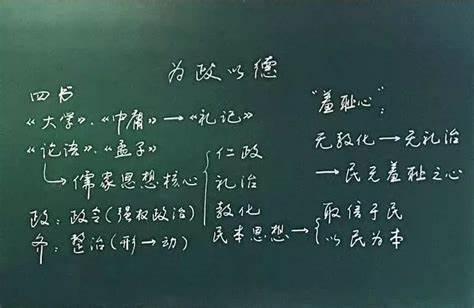 为政以德
四书
《大学》、《中庸》→《礼记》
《论语》、《孟子》
→儒家思想核心
仁政
礼治
教化
民本思想→
取信于民
以民为本
政：政令(强权政治)
齐：整治(形→动)
“羞耻心”：
无教化→无礼治
→民无羞耻之心